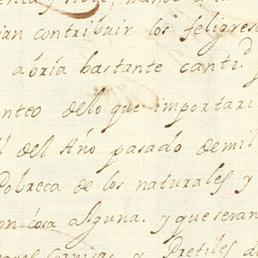 ian contribuir los feligres
abria bastante canti.d
nteo dello que importari
l del Año pasado de mil
Pobreca de los naturales y
on cosa alguna. y que seran
Pretiles d